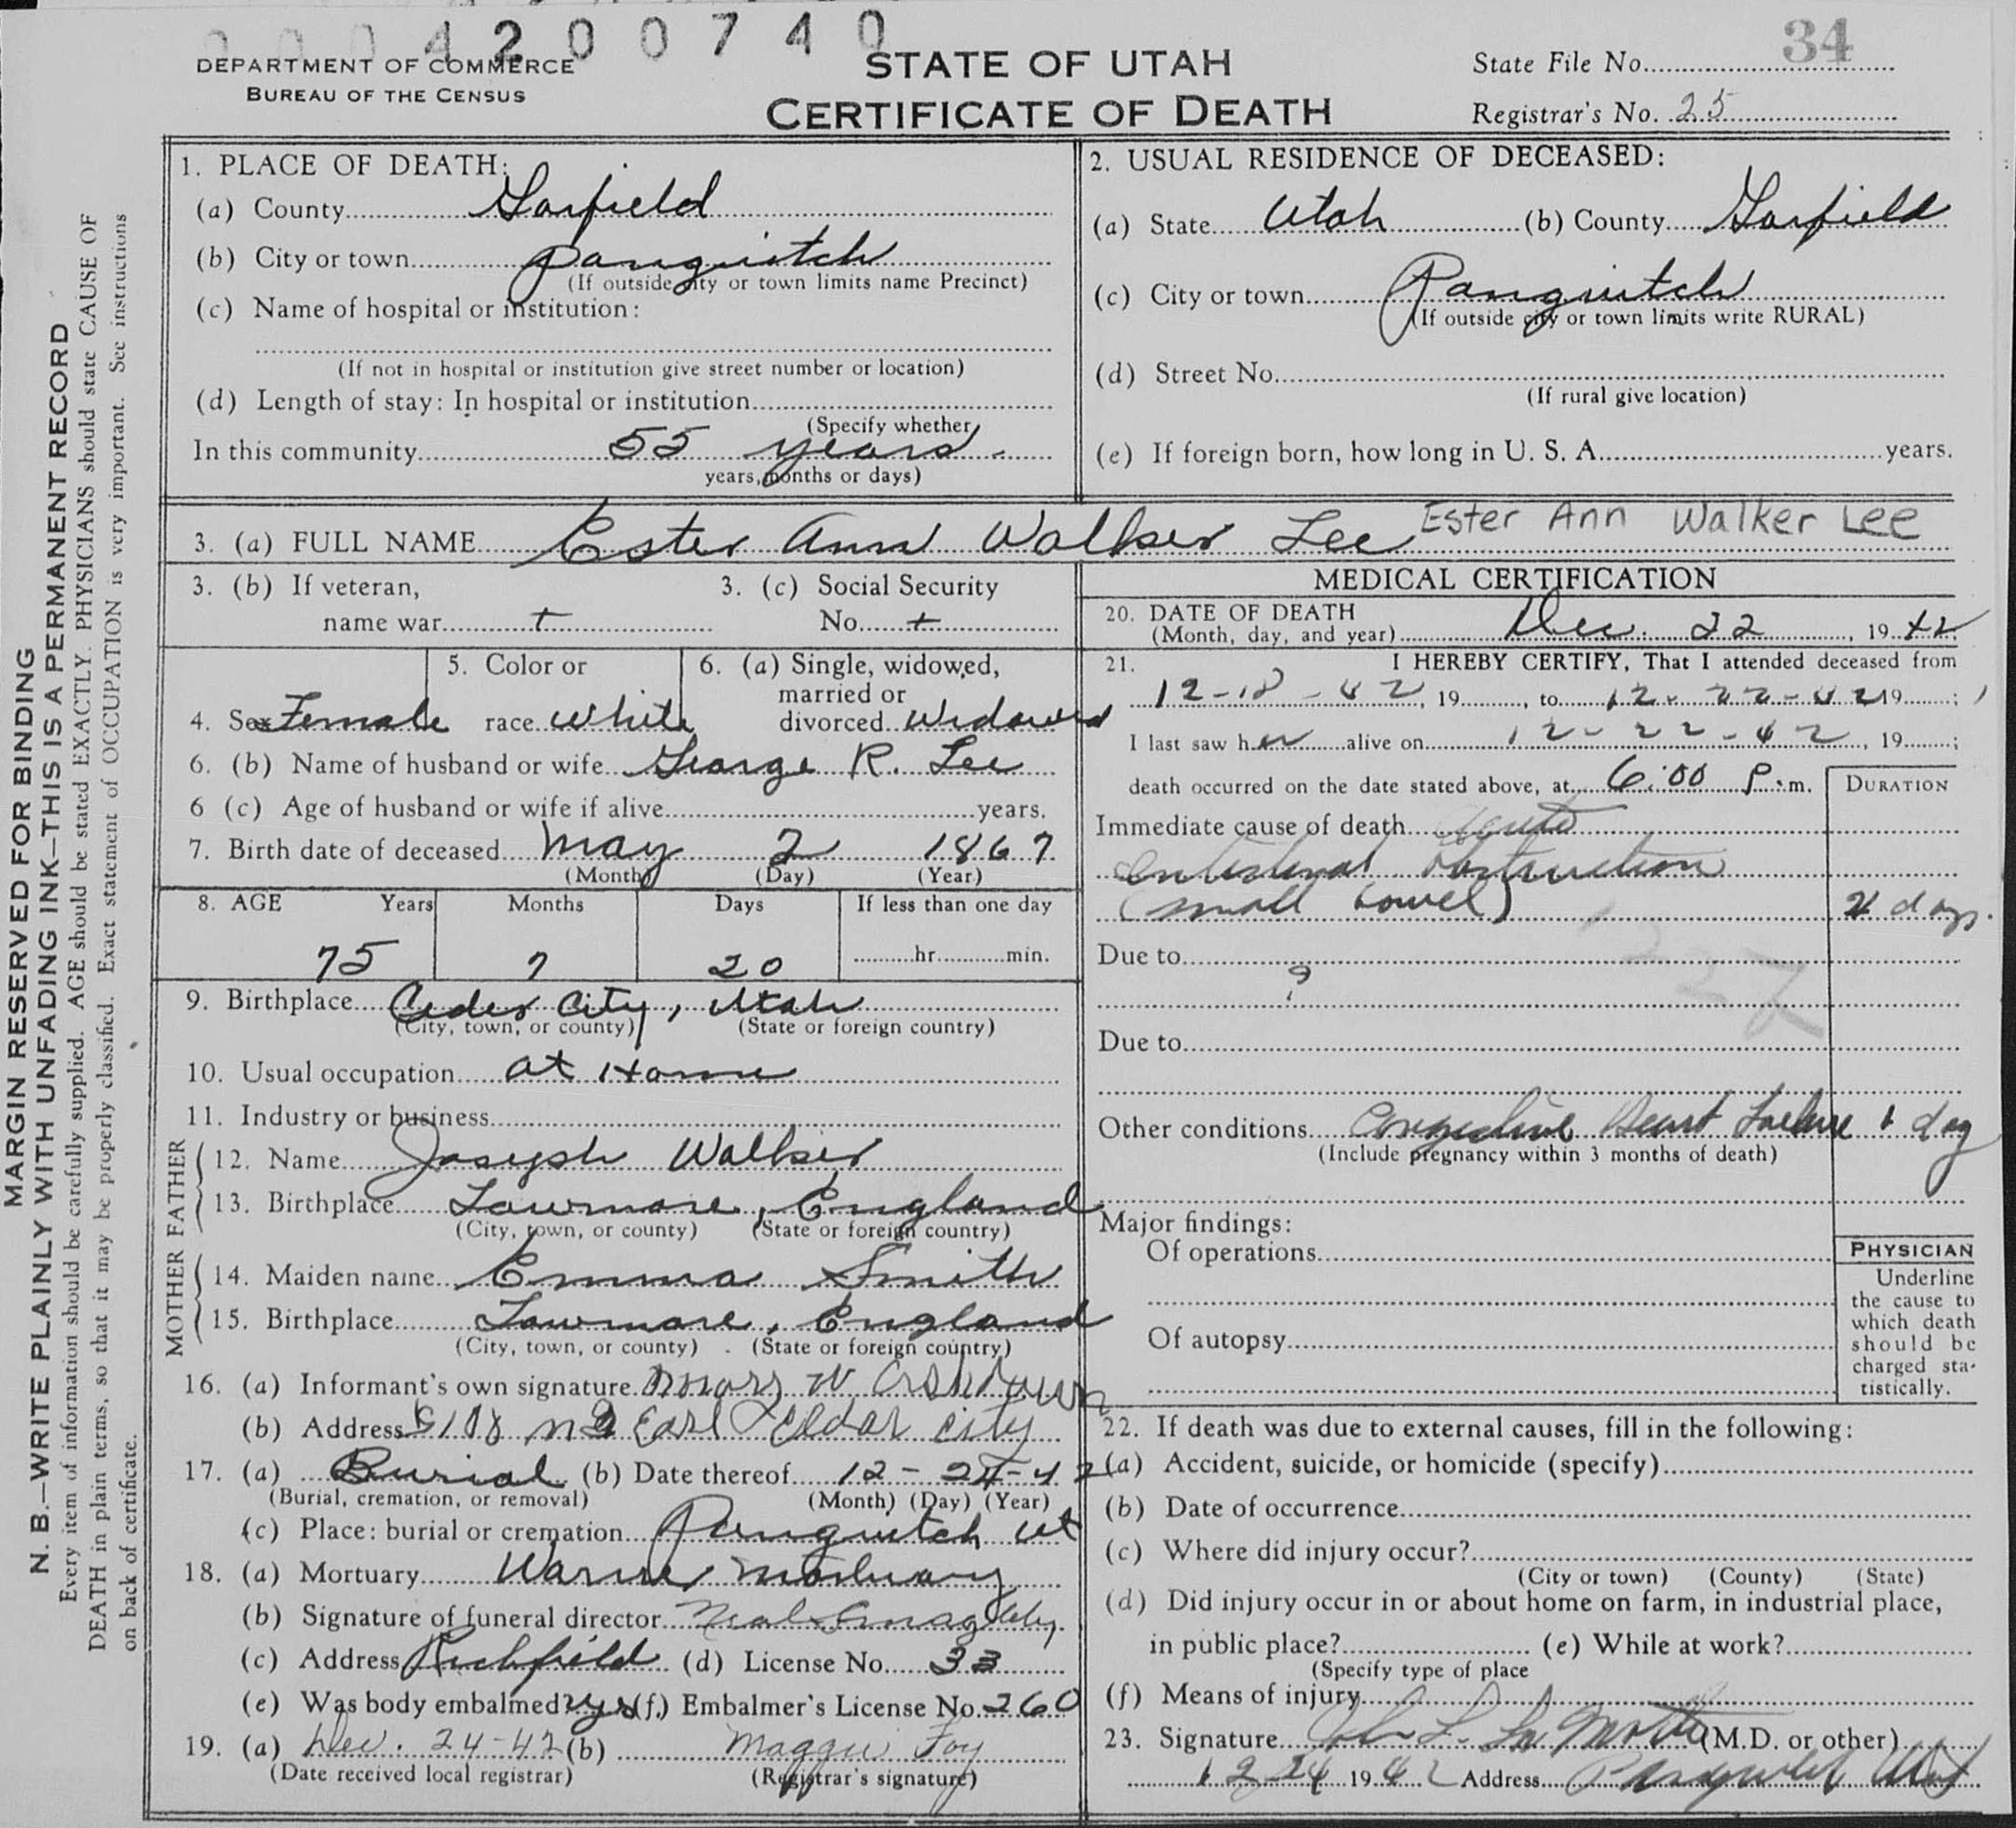 0004200740
DEPARTMENT OF COMMERCE
BUREAU OF THE CENSUS
STATE OF UTAH
CERTIFICATE OF DEATH
State File No. 34
Registrar's No. 25
MARGIN RESERVED FOR BINDING
N. B.—WRITE PLAINLY WITH UNFADING INK—THIS IS A PERMANENT RECORD
Every item of information should be carefully supplied. AGE should be stated EXACTLY. PHYSICIANS should state CAUSE OF
DEATH in plain terms, so that it may be properly classified. Exact statement of OCCUPATION is very important. See instructions
on back of certificate.
1. PLACE OF DEATH:
(a) County Garfield
(b) City or town Panguitch
(If outside city or town limits name Precinct)
(c) Name of hospital or institution:
(If not in hospital or institution give street number or location)
(d) Length of stay: In hospital or institution
(Specify whether
In this community 55 years
years, months or days)
2. USUAL RESIDENCE OF DECEASED:
(a) State Utah (b) County Garfield
(c) City or town Panguitch
(If outside city or town limits write RURAL)
(d) Street No.
(If rural give location)
(e) If foreign born, how long in U. S. A. years.
3. (a) FULL NAME Ester Ann Walker Lee Ester Ann Walker Lee
3. (b) If veteran,
name war +
3. (c) Social Security
No. +
4. Sex Female
5. Color or
race White
6. (a) Single, widowed,
married or
divorced Widowed
6. (b) Name of husband or wife George R. Lee
6 (c) Age of husband or wife if alive years.
7. Birth date of deceased May 2 1867
(Month) (Day) (Year)
8. AGE Years Months Days If less than one day
75 7 20 hr. min.
9. Birthplace Ceder City, Utah
(City, town, or county) (State or foreign country)
10. Usual occupation at Home
11. Industry or business
FATHER
12. Name Joseph Walker
13. Birthplace Lowmore, England
(City, town, or county) (State or foreign country)
MOTHER
14. Maiden name Emma Smith
15. Birthplace Lowmore, England
(City, town, or county) (State or foreign country)
16. (a) Informant's own signature Mary W
(b) Address Cedar City
17. (a) Burial (b) Date thereof 12-24-42
(Burial, cremation, or removal) (Month) (Day) (Year)
(c) Place: burial or cremation Panguitch Ut
18. (a) Mortuary Mortuary
(b) Signature of funeral director Neal
(c) Address Richfield (d) License No. 33
(e) Was body embalmed? yes (f) Embalmer's License No. 260
19. (a) Dec. 24-42 (b) Maggie Foy
(Date received local registrar) (Registrar's signature)
MEDICAL CERTIFICATION
20. DATE OF DEATH
(Month, day, and year) Dec. 22, 1942
21. I HEREBY CERTIFY, That I attended deceased from
12-18-42, 19, to 12-22-42 19;
I last saw her alive on 12-22-42, 19;
death occurred on the date stated above, at 6:00 P.m.
DURATION
Immediate cause of death Acute
intestinal obstruction
(small bowel) days.
Due to
?
227
Due to
Other conditions Congestive Heart Failure 1 day
(Include pregnancy within 3 months of death)
Major findings:
Of operations
Of autopsy
PHYSICIAN
Underline
the cause to
which death
should be
charged sta-
tistically.
22. If death was due to external causes, fill in the following:
(a) Accident, suicide, or homicide (specify)
(b) Date of occurrence
(c) Where did injury occur?
(City or town) (County) (State)
(d) Did injury occur in or about home on farm, in industrial place,
in public place? (e) While at work?
(Specify type of place
(f) Means of injury
23. Signature (M.D. or other)
12 24 1942 Address Panguitch Utah